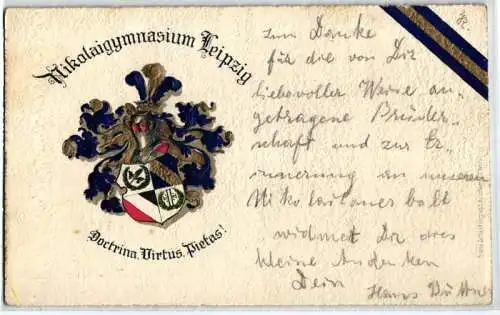 Nikolaigymnasium Leipzig
Doctrina, Virtus, Pietas!
zum Danke
für die von Dir
liebevoller Weise an-
getragene Brüder-
schaft und zur Er-
innerung an unseren
Nikolaitaner ball
widmet Dir dies
kleine Andenken
Dein Hans Büttner